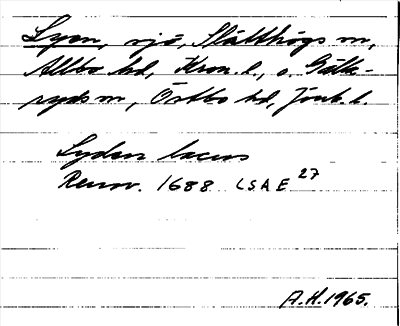 Lyen, sjö, Slätthögs sn,
Allbo hd, Kron. l., o. Gälla-
ryds sn, Östbo hd, Jönk. l.
Lyden lacus
Rensn. 1688 LSAE 27
A.H. 1965.